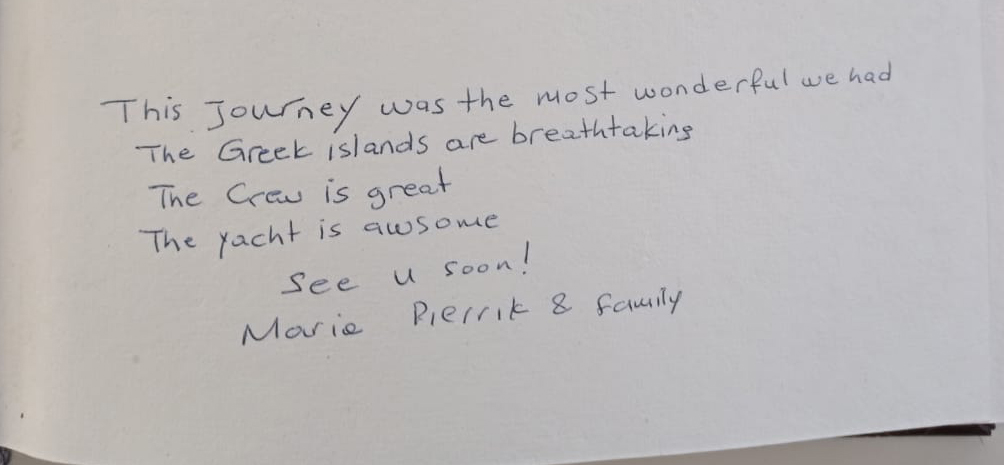 This Journey was the most wonderful we had
The Greek islands are breathtaking
The Crew is great
The yacht is awsome
See u soon!
Marie Pierrik & family